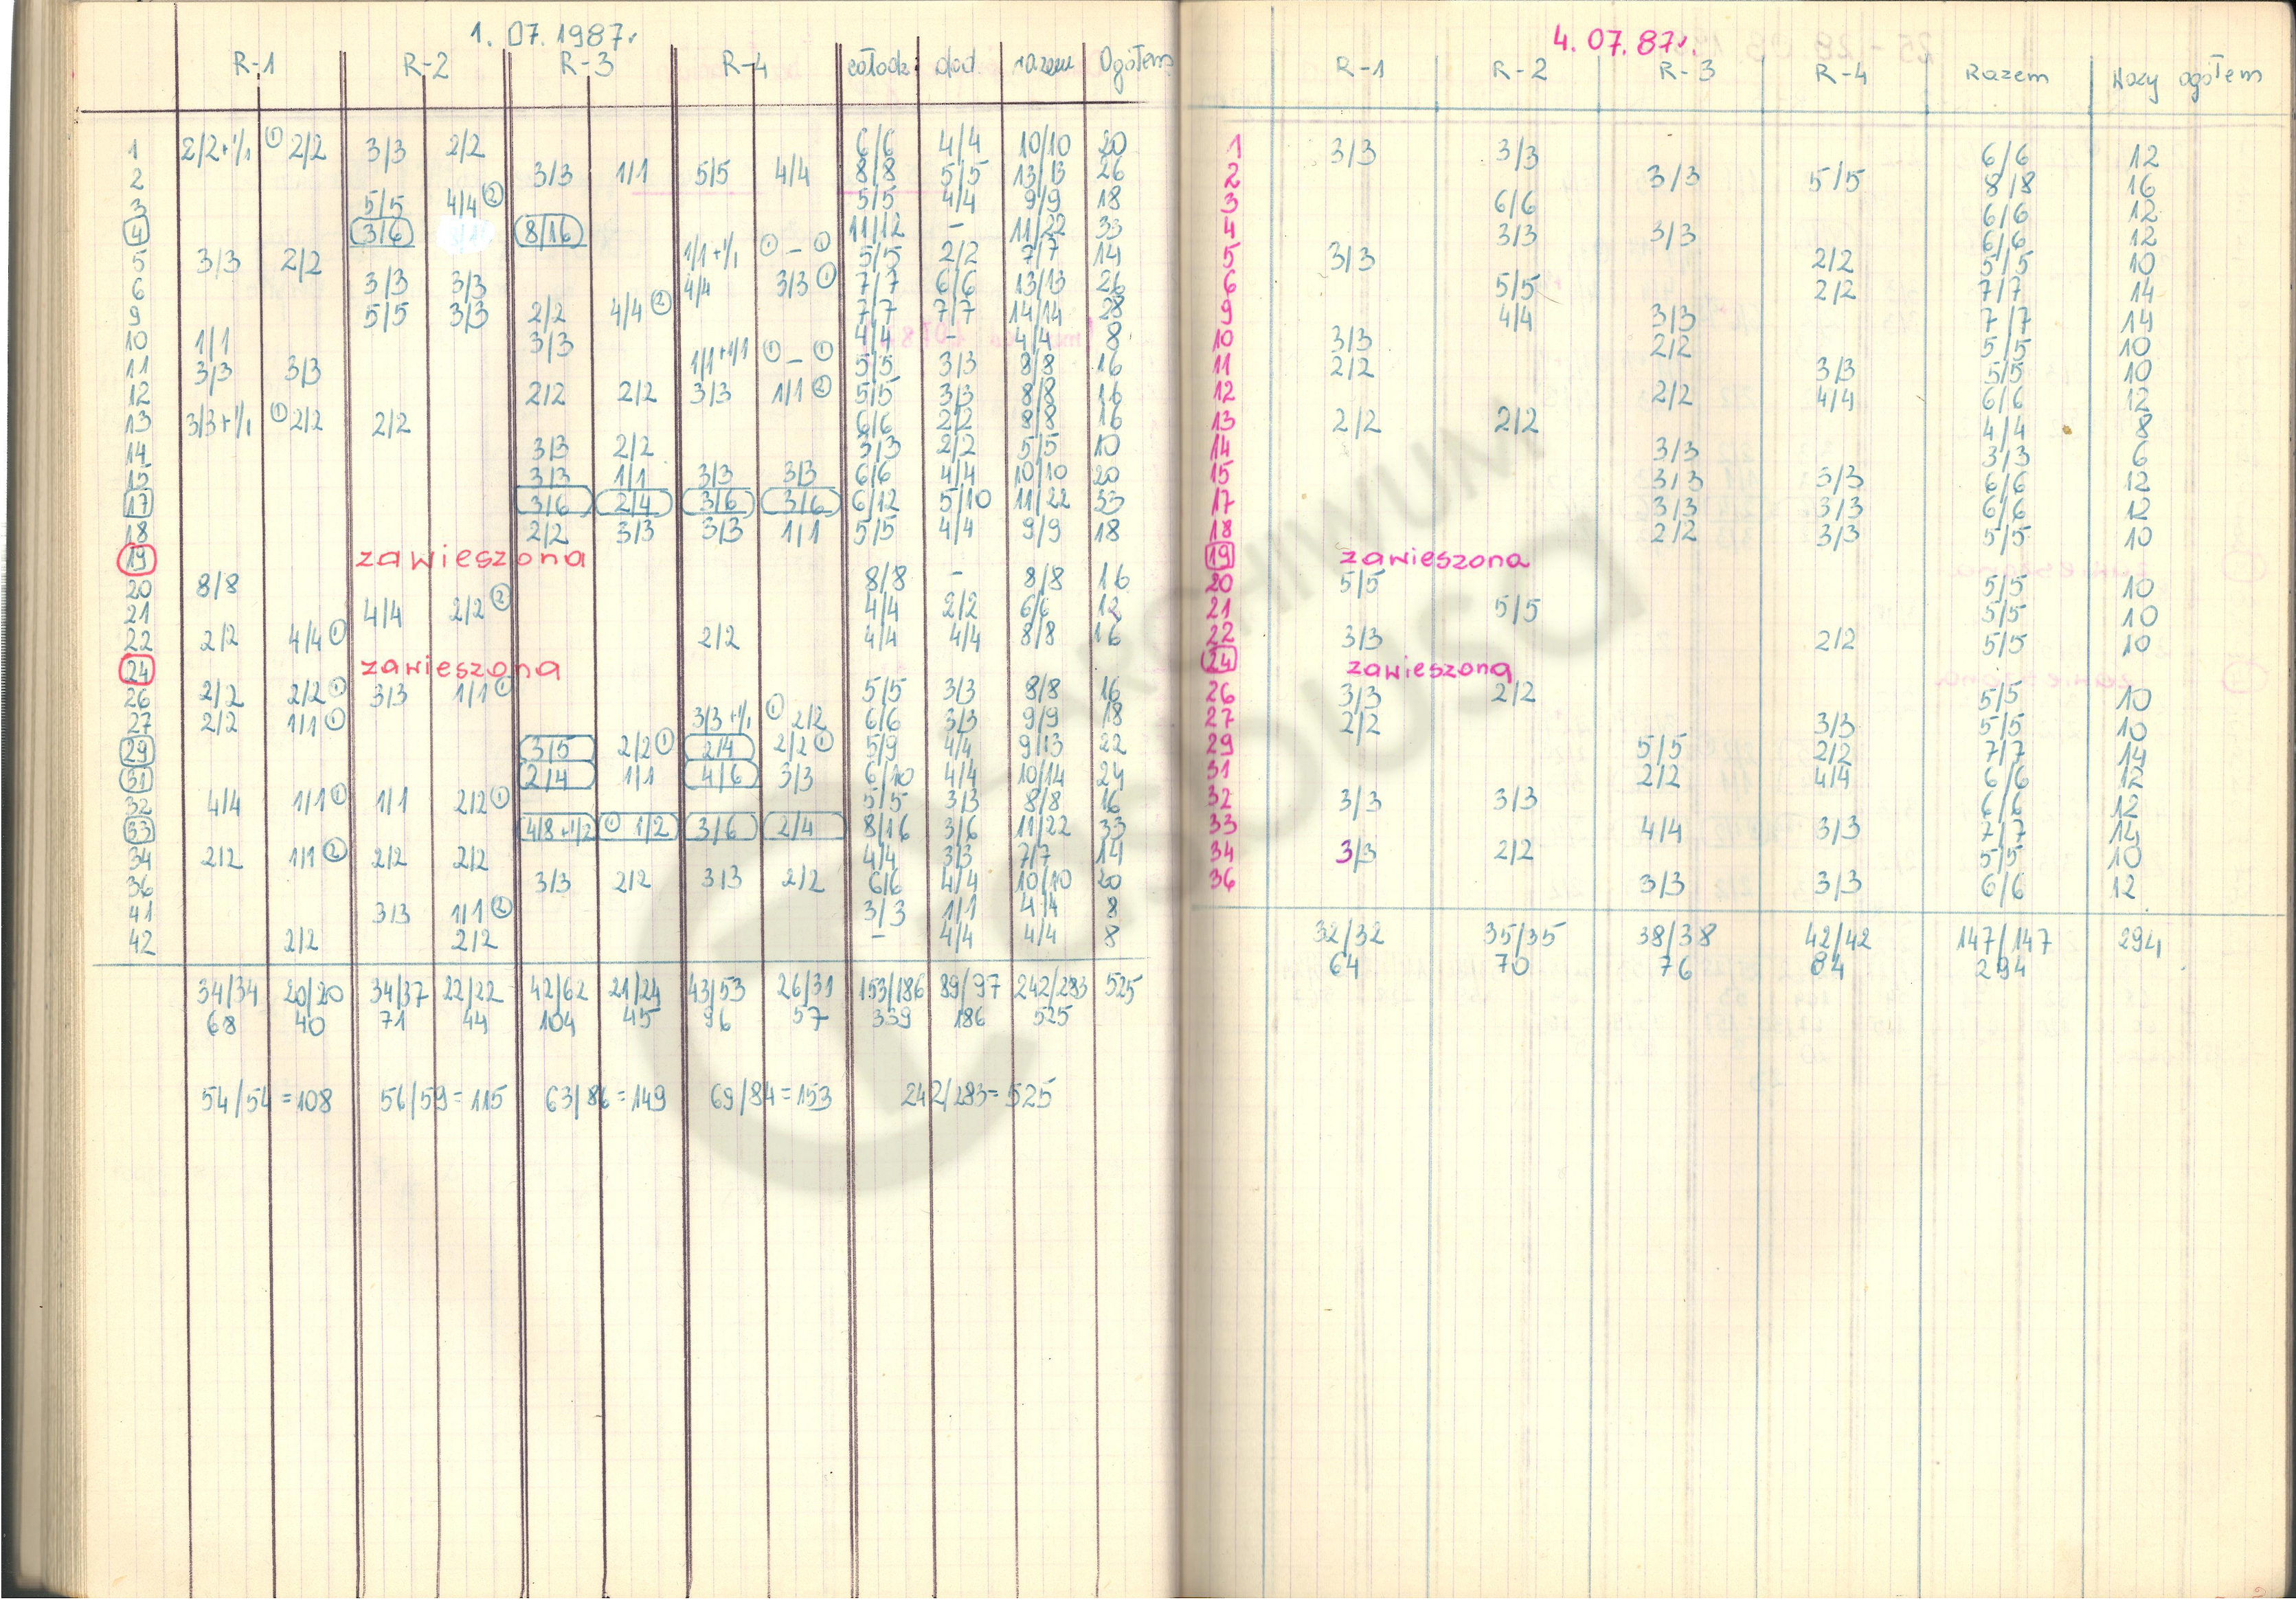 1. 07. 1987r.
R-1 R-2 R-3 R-4 całodz. dod. razem Ogółem
1 2/2+1/1 ① 2/2 3/3 2/2 6/6 4/4 10/10 20
2 3/3 1/1 5/5 4/4 8/8 5/5 13/13 26
3 5/5 4/4 ② 5/5 4/4 9/9 18
4 3/6 8/16 11/12 - 11/22 33
5 3/3 2/2 1/1+1/1 ① - ① 5/5 2/2 7/7 14
6 3/3 3/3 4/4 3/3 ① 7/7 6/6 13/13 26
9 5/5 3/3 2/2 4/4 ② 7/7 7/7 14/14 28
10 1/1 3/3 4/4 - 4/4 8
11 3/3 3/3 1/1+1/1 ① - ① 5/5 3/3 8/8 16
12 2/2 2/2 3/3 1/1 ② 5/5 3/3 8/8 16
13 3/3+1/1 ① 2/2 2/2 6/6 2/2 8/8 16
14 3/3 2/2 3/3 2/2 5/5 10
15 3/3 1/1 3/3 3/3 6/6 4/4 10/10 20
17 3/6 2/4 3/6 3/6 6/12 5/10 11/22 33
18 2/2 3/3 3/3 1/1 5/5 4/4 9/9 18
19 zawieszona
20 8/8 8/8 - 8/8 16
21 4/4 2/2 ② 4/4 2/2 6/6 12
22 2/2 4/4 ① 2/2 4/4 4/4 8/8 16
24 zawieszona
26 2/2 2/2 ① 3/3 1/1 ① 5/5 3/3 8/8 16
27 2/2 1/1 ① 3/3+1/1 ① 2/2 6/6 3/3 9/9 18
29 3/5 2/2 ① 2/4 2/2 ① 5/9 4/4 9/13 22
31 2/4 1/1 4/6 3/3 6/10 4/4 10/14 24
32 4/4 1/1 ① 1/1 2/2 ① 5/5 3/3 8/8 16
33 4/8+1/2 ① 1/2 3/6 2/4 8/16 3/6 11/22 33
34 2/2 1/1 ② 2/2 2/2 4/4 3/3 7/7 14
36 3/3 2/2 3/3 2/2 6/6 4/4 10/10 20
41 3/3 1/1 ② 3/3 1/1 4/4 8
42 2/2 2/2 - 4/4 4/4 8
34/34 20/20 34/37 22/22 42/62 21/24 43/53 26/31 153/186 89/97 242/283 525
68 40 71 44 104 45 96 57 339 186 525
54/54=108 56/59=115 63/86=149 69/84=153 242/283=525
4. 07. 87r.
R-1 R-2 R-3 R-4 Razem Wozy ogółem
1 3/3 3/3 6/6 12
2 3/3 5/5 8/8 16
3 6/6 6/6 12
4 3/3 3/3 6/6 12
5 3/3 2/2 5/5 10
6 5/5 2/2 7/7 14
9 4/4 3/3 7/7 14
10 3/3 2/2 5/5 10
11 2/2 3/3 5/5 10
12 2/2 4/4 6/6 12
13 2/2 2/2 4/4 8
14 3/3 3/3 6
15 3/3 3/3 6/6 12
17 3/3 3/3 6/6 12
18 2/2 3/3 5/5 10
19 zawieszona
20 5/5 5/5 10
21 5/5 5/5 10
22 3/3 2/2 5/5 10
24 zawieszona
26 3/3 2/2 5/5 10
27 2/2 3/3 5/5 10
29 5/5 2/2 7/7 14
31 2/2 4/4 6/6 12
32 3/3 3/3 6/6 12
33 4/4 3/3 7/7 14
34 3/3 2/2 5/5 10
36 3/3 3/3 6/6 12
32/32 35/35 38/38 42/42 147/147 294
64 70 76 84 294
ARCHIWUM